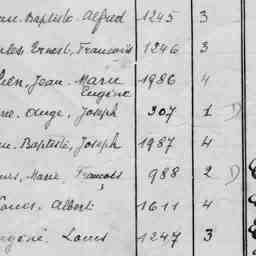 Baptiste Alfred 1245 3
Ernest, Francois 1246 3
Jean Marie 1986 4
Eugène
Ange, Joseph 307 1 D
Baptiste, Joseph 1987 4
Marie François 988 2 D
Louis Albert 1611 4
Louis 1247 3